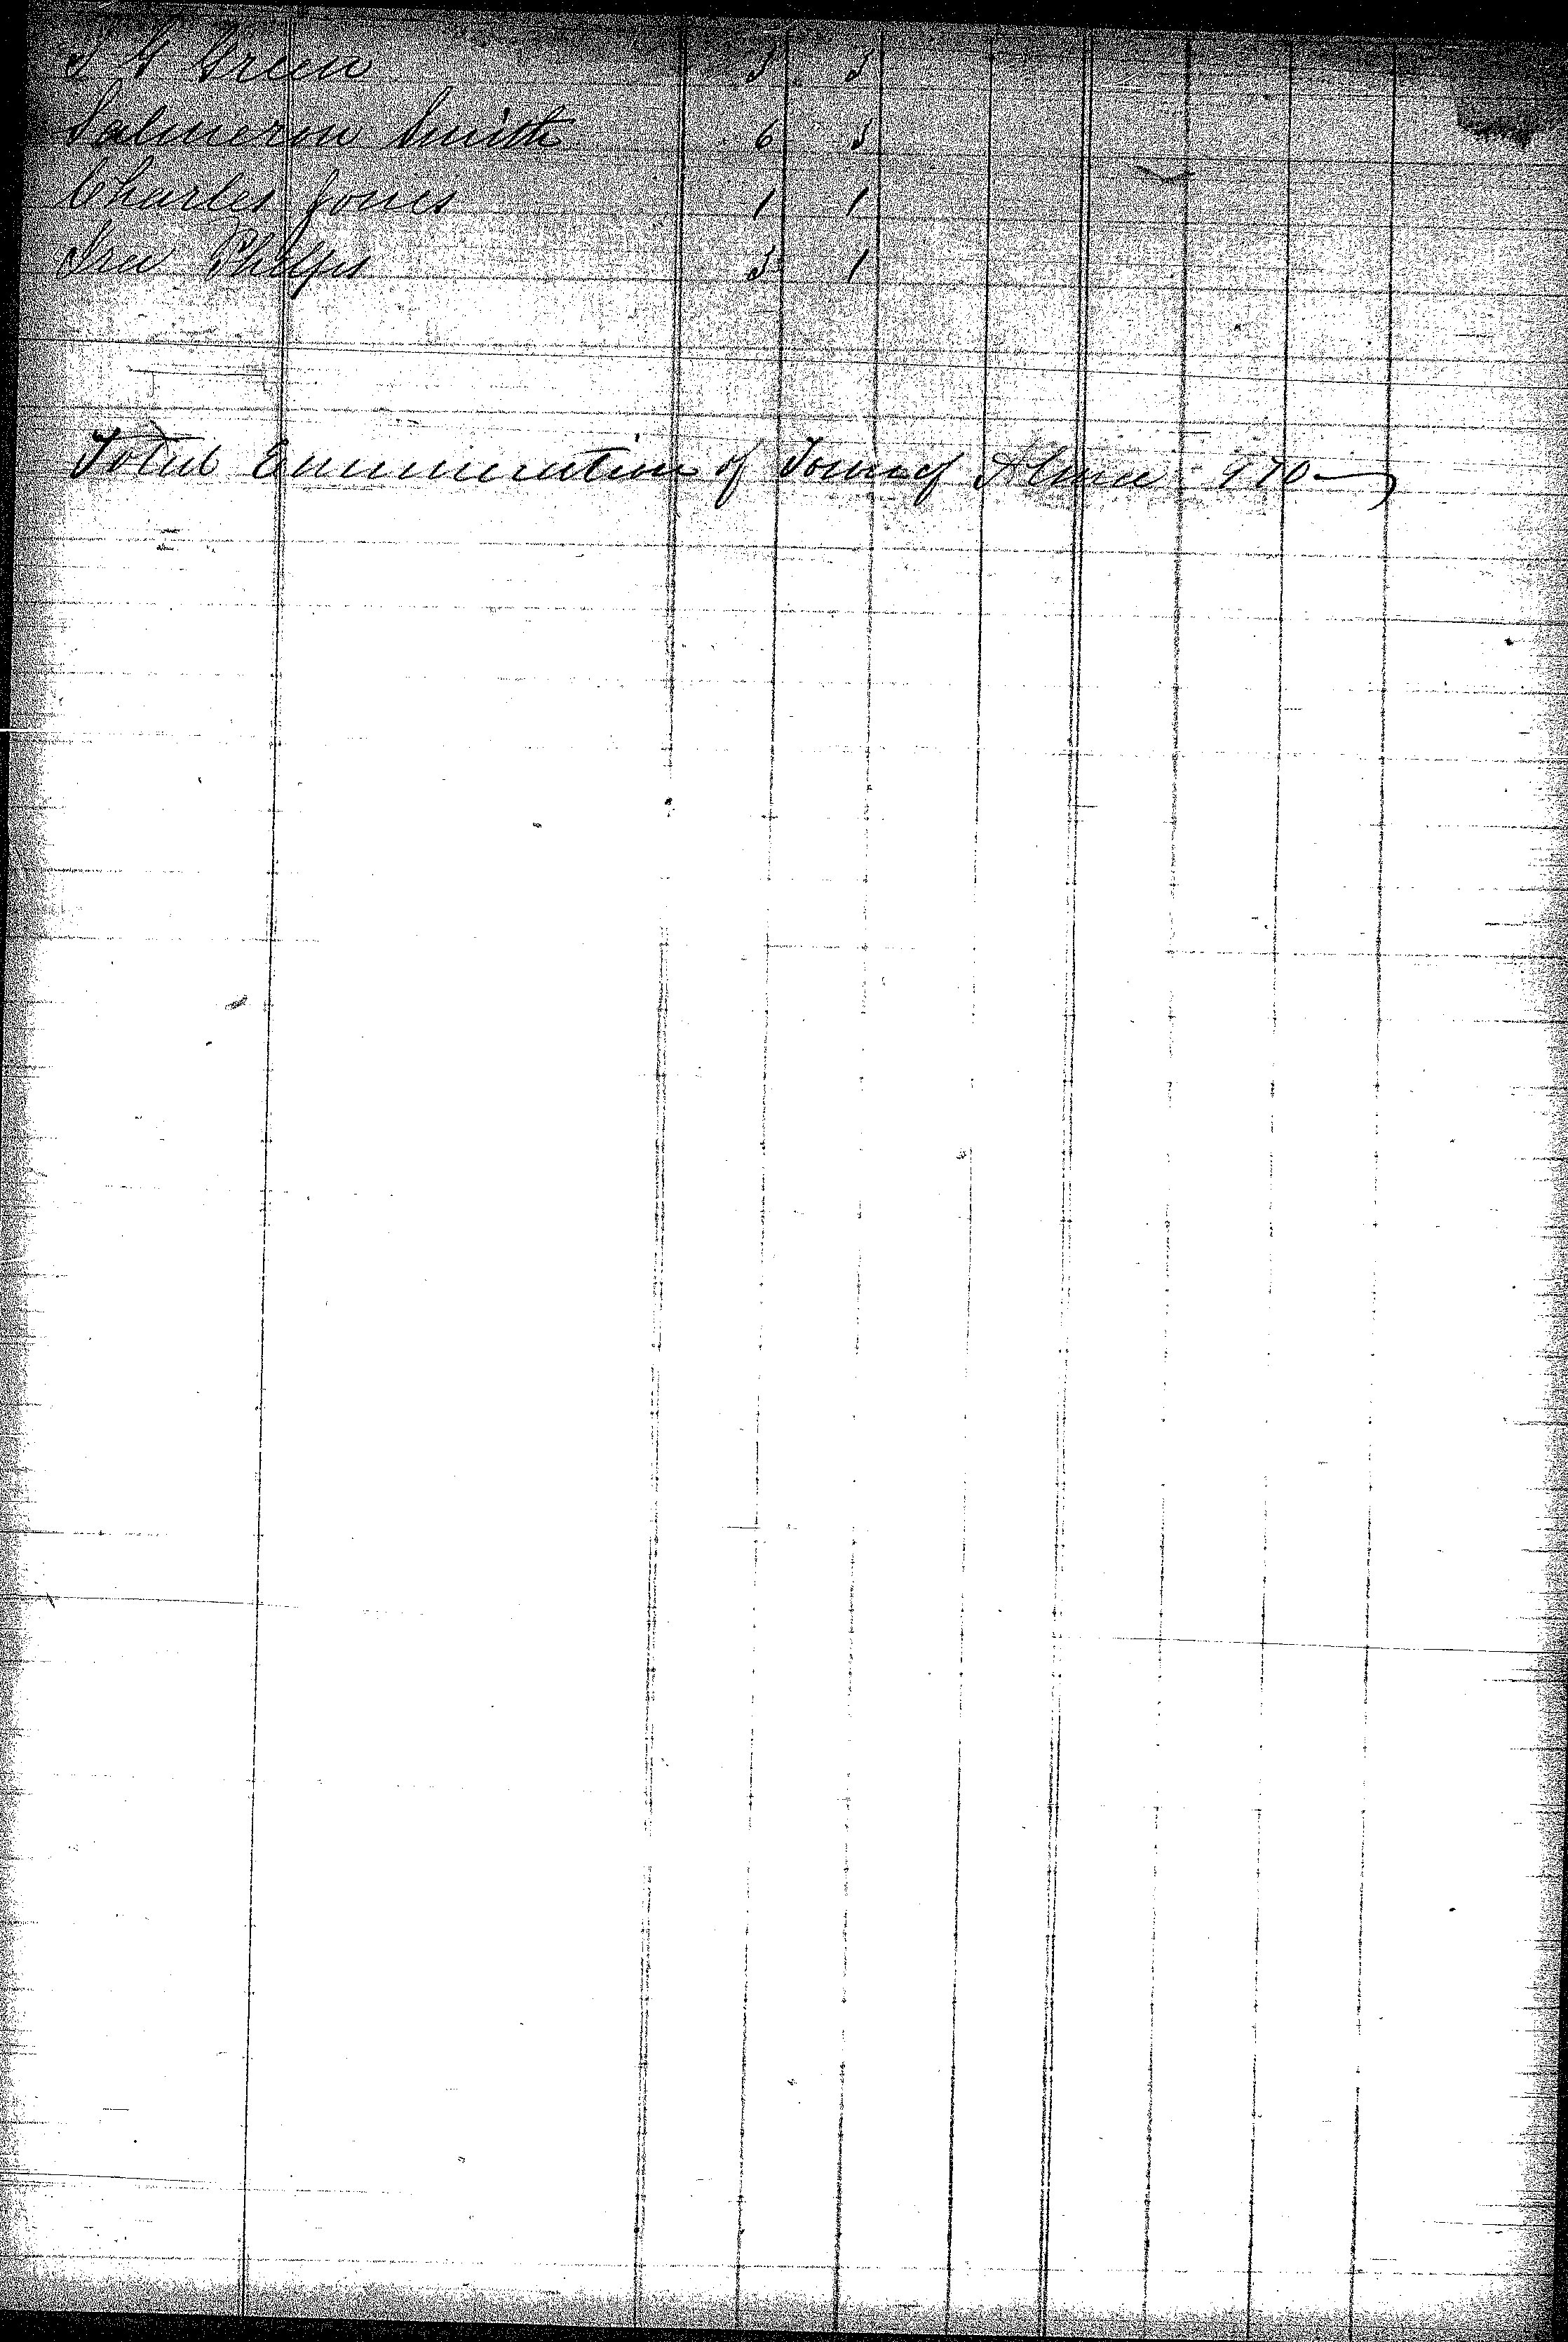 G Green 3 3
Salmeron Smith 6 3
Charles Jones 1 1
Ira Phelps 3 1
Total Enumeration of Town of Alma 970